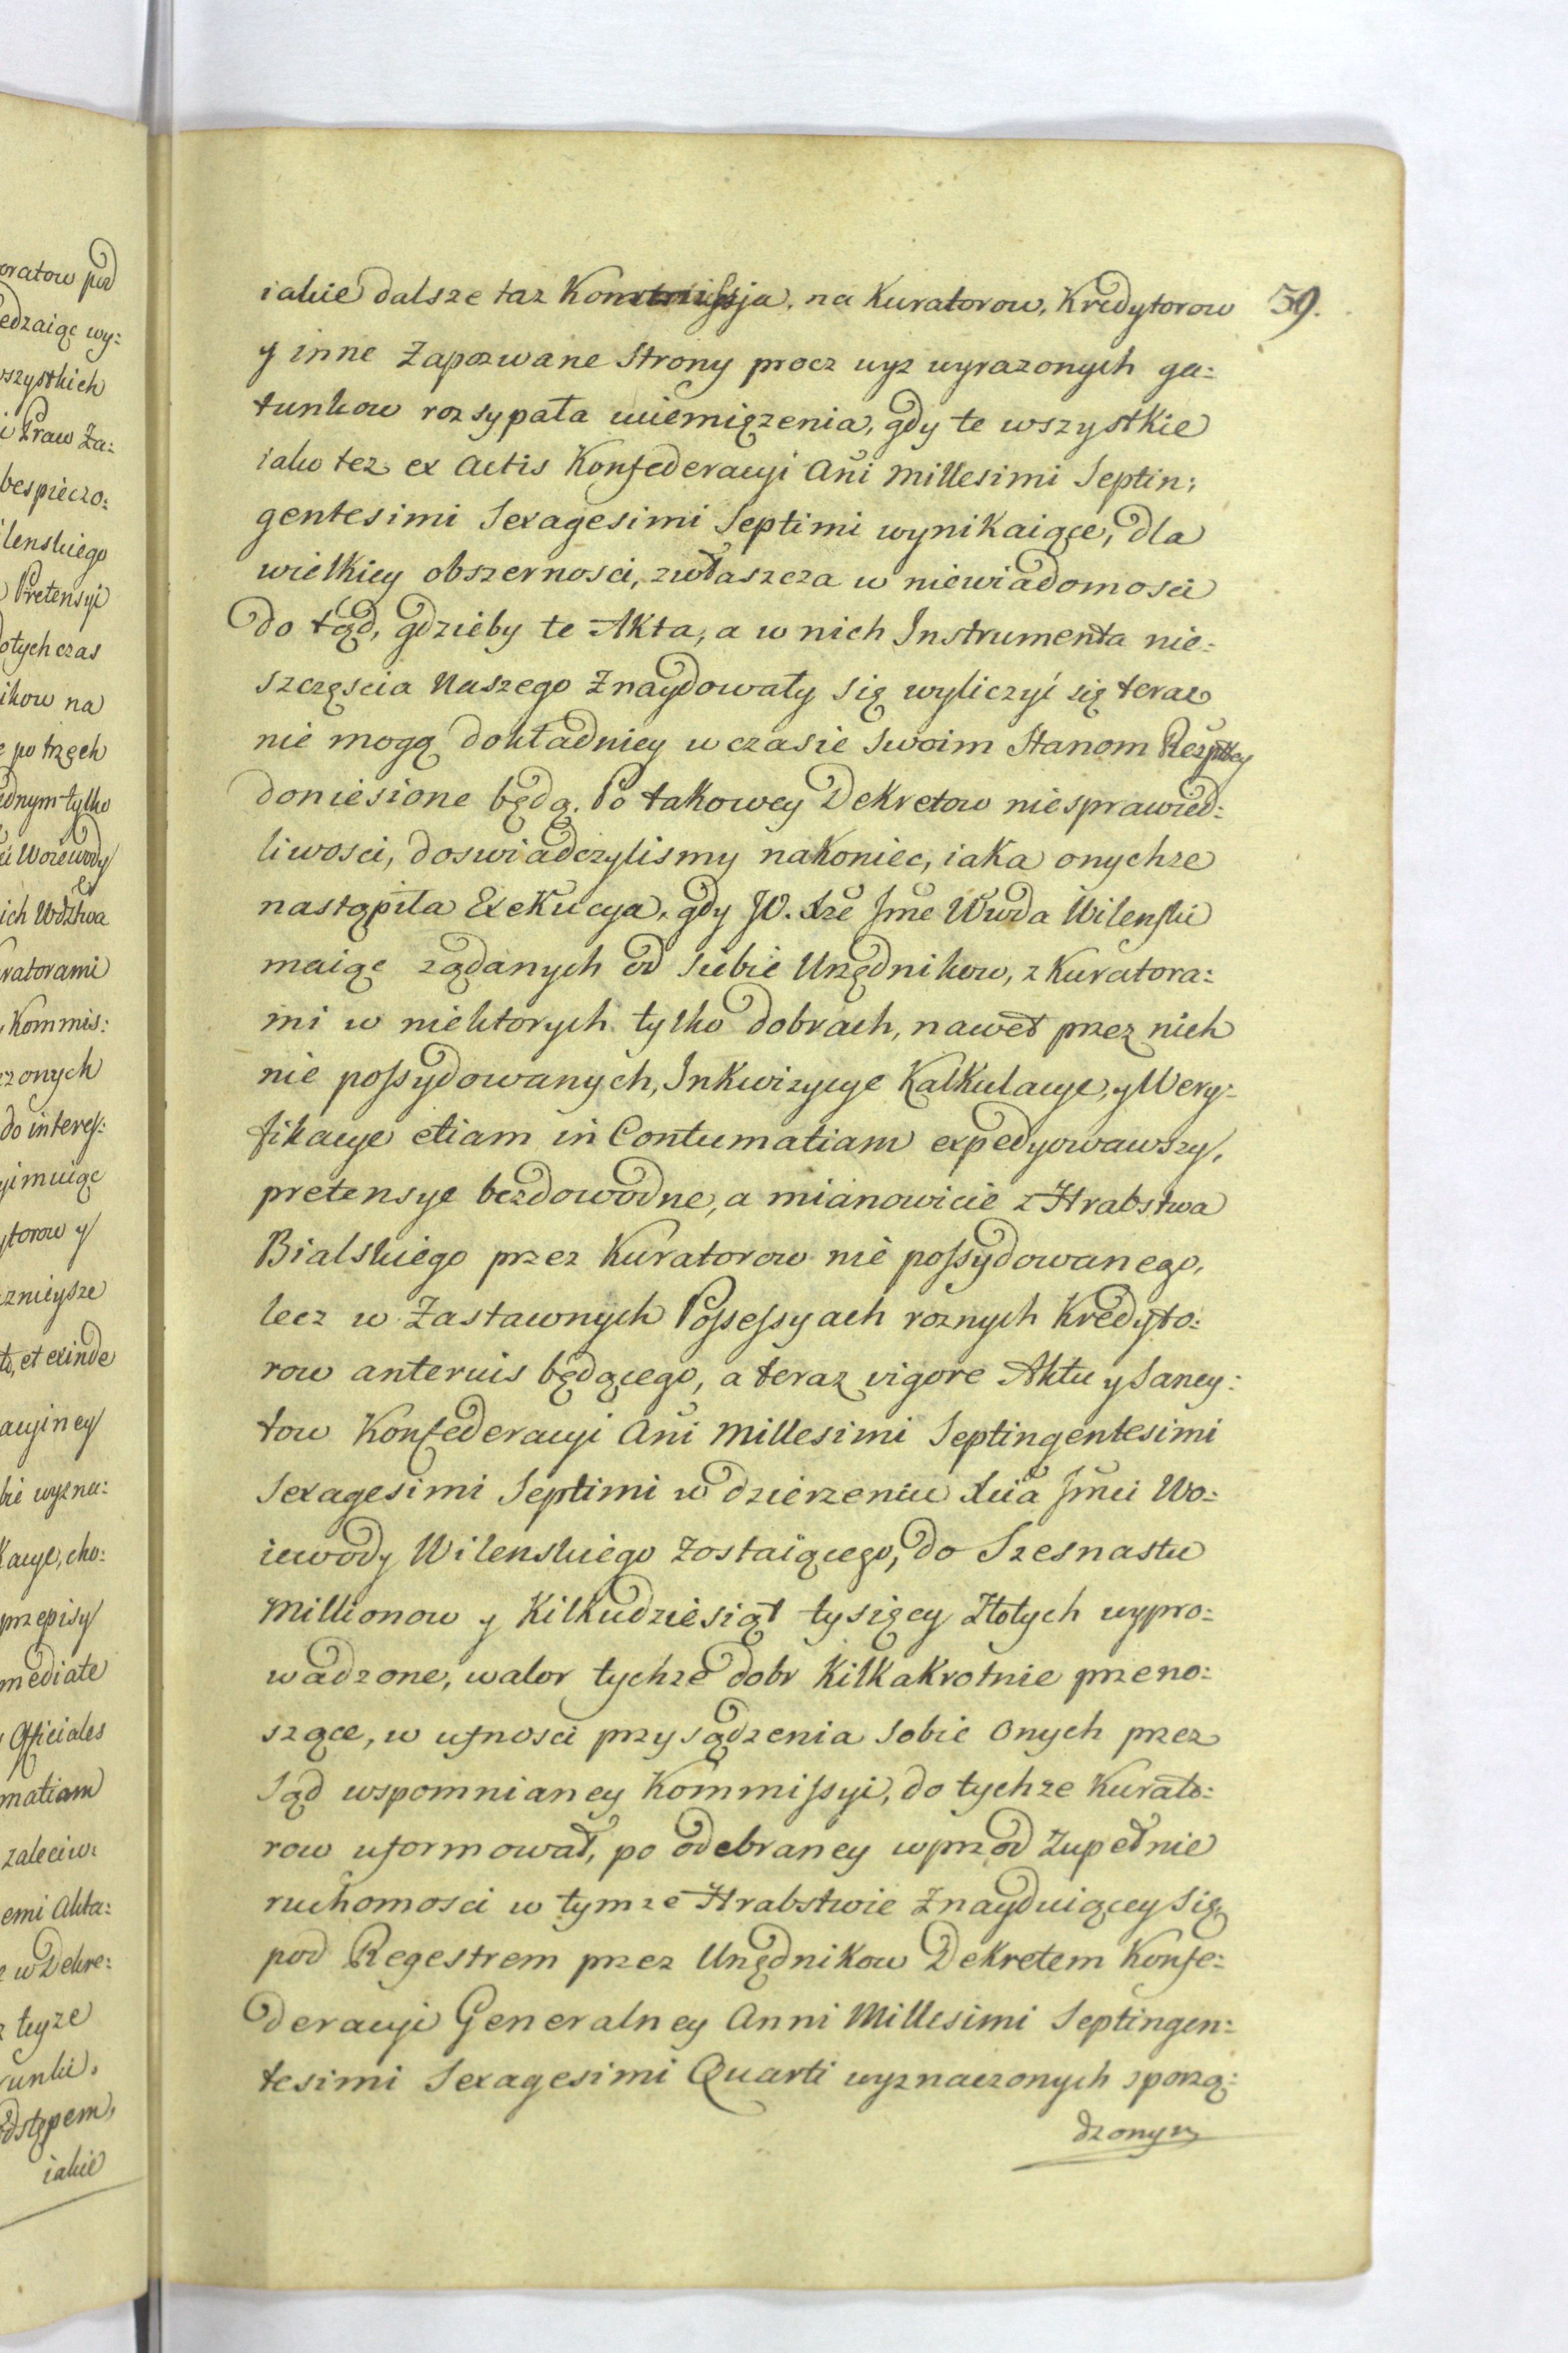 oratow pod
edzaiąc wy:
wszystkich
i Praw Za:
bespieczo:
ilenskiego
Pretensyi
otychczas
ikow na
e po trzech
ednym tylko
Woiewody
ich Wdztwa
ratorami
Kommis:
zonych
do interes:
yimuiąc
ytorow y
znieysze
et exinde
acyiney
bie wyzna:
kacye, cho:
przepisy
mediate
Officiales
matiam
zaleciw:
emi Akta:
e w Dekre:
z teyze
runki,
odstępem,
iakie
iakie dalsze taz Kommissja, na Kuratorow, Kredytorow 59.
y inne Zapozwane Strony procz wyz wyrazonych ga:
tunkow rozsypała uiemięzenia, gdy te wszystkie
iako tez ex Actis Konfederacyi Añi Millesimi Septin:
gentesimi Sexagesimi Septimi wynikaiące, dla
wielkiey obszernosci, zwłaszcza w niewiadomosci
do tąd, gdzieby te Akta, a w nich Instrumenta nie:
szczęscia Naszego Znaydowały się wyliczyć się teraz
nie mogą dokładniey w czasie Swoim Stanom Rzeypltey
doniesione będą. Po takowey Dekretow niesprawied:
liwosci, doswiadczylismy nakoniec, iaka onychze
nastąpiła Exekucya, gdy JO. Xże Jme Wwda Wilenski
maiąc ządanych od Siebie Urzędnikow, z Kuratora:
mi w niektorych tylko dobrach, nawet przez nich
nie possydowanych, Inkwizycye Kalkulacye, y Wery:
fikacye etiam in Contumatiam expedyowawszy,
pretensye bezdowodne, a mianowicie z Hrabstwa
Bialskiego przez Kuratorow nie possydowanego,
lecz w Zastawnych Possessyach roznych Kredyto:
row anterius będącego, a teraz vigore Aktu y Sancy:
tow Konfederacyi Añi Millesimi Septingentesimi
Sexagesimi Septimi w dzierzeniu Xcia Jmci Wo:
iewody Wilenskiego zostaiącego, do Szesnastu
Millionow y Kilkudziesiąt tysięcy Złotych wypro:
wadzone, walor tychze dobr Kilkakrotnie przeno:
szące, w ufnosci przysądzenia Sobie onych przez
Sąd wspomnianey Kommissyi, do tychze Kurato:
row uformował, po odebraney wprzod Zupełnie
ruchomosci w tymze Hrabstwie Znayduiącey Się
pod Regestrem przez Urzędnikow Dekretem Konfe:
deracyi Generalney Anni Millesimi Septingen:
tesimi Sexagesimi Quarti wyznaczonych sporzą:
dzonym